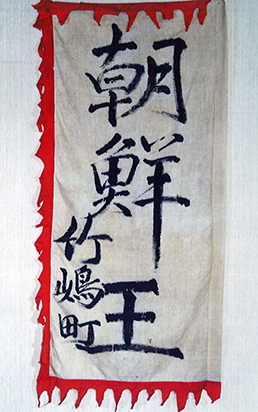 朝鮮王
竹嶋町